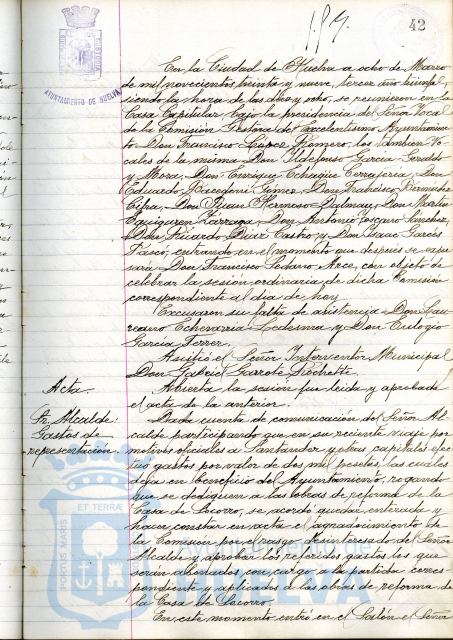 187.
42
AYUNTAMIENTO DE HUELVA
En la Ciudad de Huelva a ocho de Marzo
de mil novecientos treinta y nueve, tercer año triunfal,
siendo la hora de las diez y ocho, se reunieron en la
Casa Capitular bajo la presidencia del Señor Vocal
de la Comisión Gestora del Excelentísimo Ayuntamien-
to Don Francisco López Romero, los también Vo-
cales de la misma Don Ildefonso García
y Mora, Don Enrique Echagüe Don
Eduardo Gómez, Don Francisco Bermúdez
Cifra, Don Juan Hermoso Dalmau, Don Martín
Eguiguren Don Antonio Toscano Sánchez,
Don Ricardo Díaz Castro, y Don Isaac Garcés
entrando en el momento que después se expre-
sará Don Francisco Sedano Arce, con objeto de
celebrar la sesión ordinaria de dicha Comisión
correspondiente al día de hoy
Excusaron su falta de asistencia Don Lau-
reano Echevarría Ledesma y Don Eulogio
García Ferrer.
Asistió el Señor Interventor Municipal
Don Gabriel Garrote
Acta. Abierta la sesión fue leída y aprobada
el acta de la anterior.
Sr. Alcalde: Dada cuenta de comunicación del Señor Al-
Gastos de calde participando que en su reciente viaje por
representación. motivos oficiales a Santander y otras capitales efec-
tuó gastos por valor de dos mil pesetas, las cuales
deja en beneficio del Ayuntamiento, rogando
que se dediquen a las obras de reforma de la
Casa de Socorro, se acordó quedar enterada y
hacer constar en acta el agradecimiento de
la Comisión por el rasgo desinteresado del Señor
Alcalde y aprobar los referidos gastos los que
serán abonados con cargo a la partida corres-
pondiente y aplicados a las obras de reforma de
la Casa de Socorro.
En este momento entró en el Salón el Señor
PORTUS MARIS ET TERRAE
HUELVA